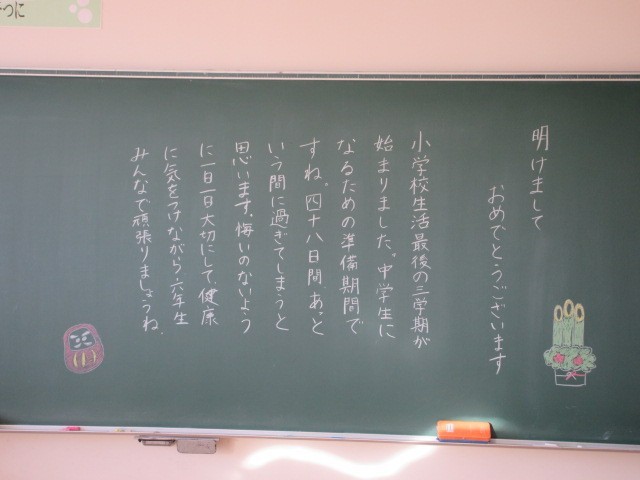 明けまして
おめでとうございます
小学校生活最後の三学期が
始まりました。中学生に
なるための準備期間で
すね。四十八日間、あっと
いう間に過ぎてしまうと
思います。悔いのないよう
に一日一日大切にして、健康
に気をつけながら、六年生
みんなで頑張りましょうね。